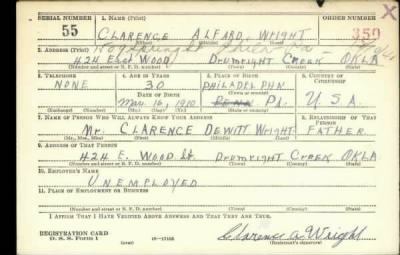 SERIAL NUMBER 1. NAME (Print) ORDER NUMBER
55 CLARENCE ALFARD. WRIGHT 350
(First) (Middle) (Last)
2. ADDRESS (Print)
424 East WOOD Drumright Creek OKLA
(Number and street or R. F. D. number) (Town) (County) (State)
3. TELEPHONE 4. AGE IN YEARS 5. PLACE OF BIRTH 6. COUNTRY OF CITIZENSHIP
NONE 30 PHILADELPHA
DATE OF BIRTH (Town or county)
May 16, 1910 PENN PA. U.S.A.
(Exchange) (Number) (Mo.) (Day) (Yr.) (State or country)
7. NAME OF PERSON WHO WILL ALWAYS KNOW YOUR ADDRESS 8. RELATIONSHIP OF THAT PERSON
Mr. CLARENCE DEWITT WRIGHT FATHER
(Mr., Mrs., Miss) (First) (Middle) (Last)
9. ADDRESS OF THAT PERSON
424 E. WOOD St. Drumright Creek OKLA
(Number and street or R. F. D. number) (Town) (County) (State)
10. EMPLOYER'S NAME
UNEMPLOYED
11. PLACE OF EMPLOYMENT OR BUSINESS
(Number and street or R. F. D. number) (Town) (County) (State)
I AFFIRM THAT I HAVE VERIFIED ABOVE ANSWERS AND THAT THEY ARE TRUE.
REGISTRATION CARD
D. S. S. Form 1 (over) Clarence A. Wright
(Registrant's signature)